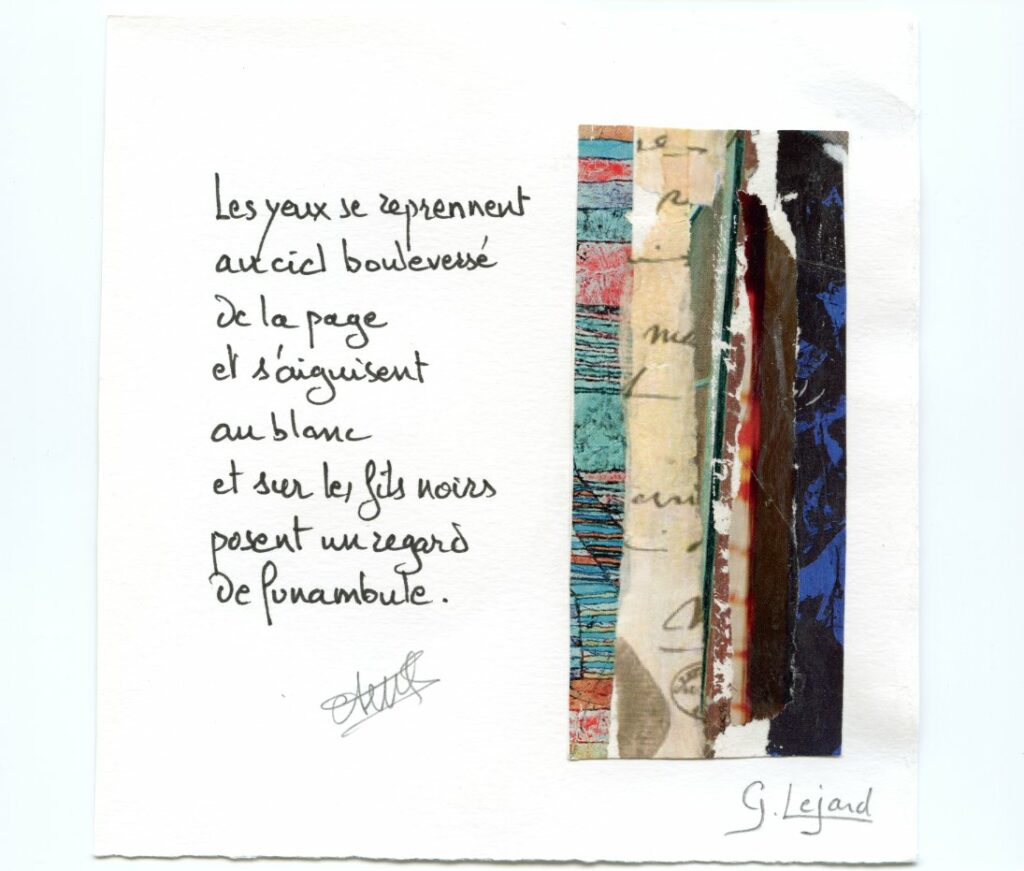 Les yeux se reprennent
au ciel bouleversé
de la page
et s'aiguisent
au blanc
et sur les fils noirs
posent un regard
de funambule.
me
G. Lejard